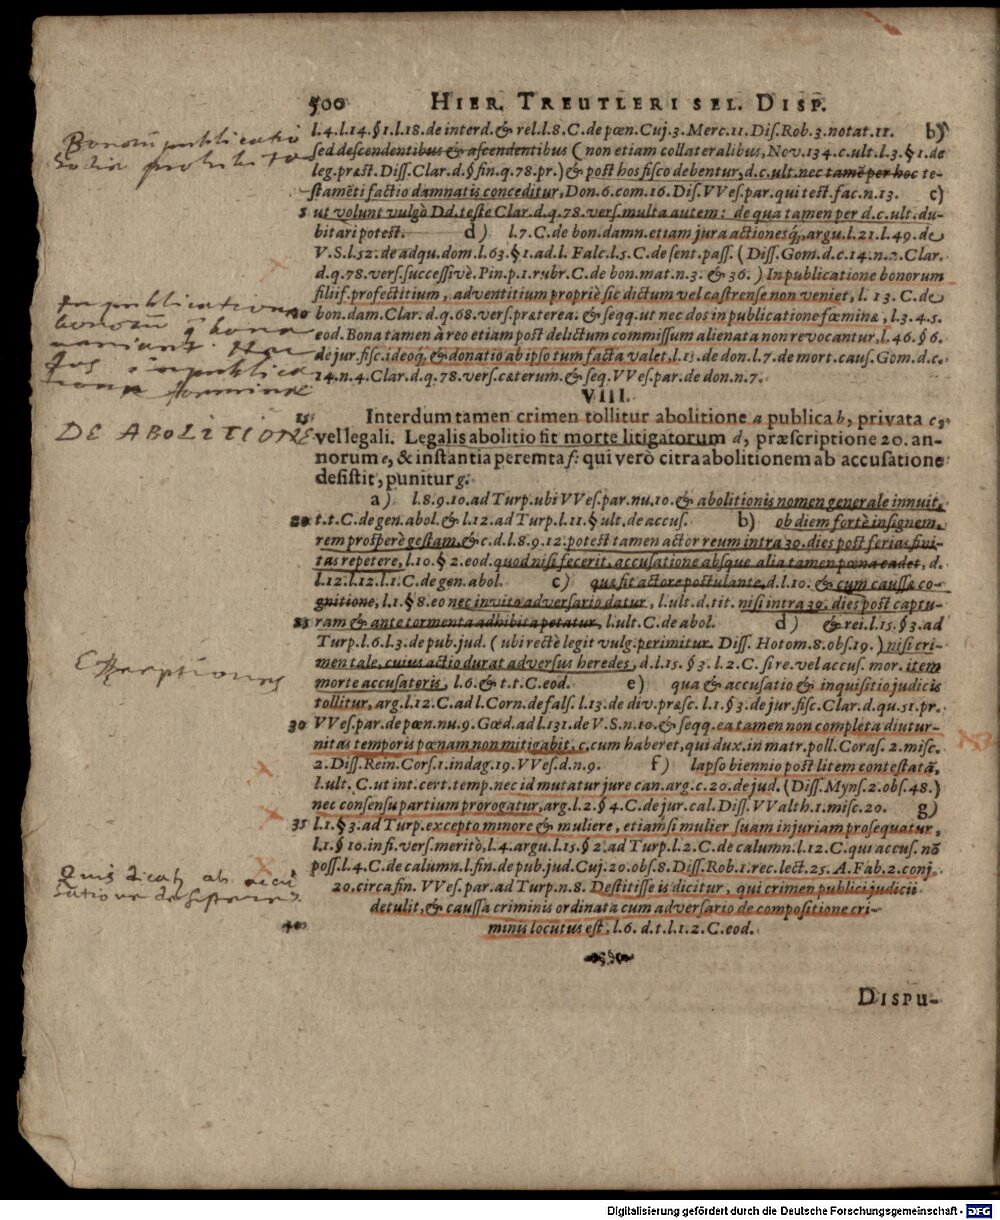 500 HIER. TREUTLERI SEL. DISP.
l.4.l.14.§1.l.18.de interd.& rel.l.8.C.de pœn.Cuj.3.Merc.11.Dis.Rob.3.notat.11. b)
sed descendentibus & ascendentibus (non etiam collateralibus, Nov.134.c.ult.l.3.§1.de
leg.præst.Diss.Clar.d.§fin.q.78.pr.) & post hos fisco debentur, d.c.ult.nec tamē per hoc te-
stamēti factio damnatis conceditur, Don.6.com.16.Dis.VVes.par.qui test.fac.n.13. c)
5 ut volunt vulgò Dd.teste Clar.d.q.78.vers.multa autem: de qua tamen per d.c.ult.du-
bitari potest. d) l.7.C.de bon.damn.etiam jura actionesq́,argu.l.21.l.49.de
V.S.l.52.de adqu.dom.l.63.§1.ad.l.Falc.l.5.C.de sent.pass.(Diss.Gom.d.c.14.n.2.Clar.
d.q.78.vers.successivè.Pin.p.1.rubr.C.de bon.mat.n.3. & 36.) In publicatione bonorum
filiif.profectitium, adventitium propriè sic dictum vel castrense non veniet, l. 13. C.de
10 bon.dam.Clar. d.q.68.vers.præterea: & seqq.ut nec dos in publicatione fœminæ, l.3.4.5.
eod. Bona tamen à reo etiam post delictum commissum alienata non revocantur, l.46.§6.
de jur.fisc.ideoq́, & donatio ab ipso tum facta valet, l.15.de don.l.7.de mort.caus.Gom.d.c.
14.n.4.Clar.d.q.78.vers.cæterum.& seq.VVes.par.de don.n.7.
VIII.
15 Interdum tamen crimen tollitur abolitione a publica b, privata c,
vel legali. Legalis abolitio fit morte litigatorum d, præscriptione 20. an-
norum e, & instantia peremta f: qui verò citra abolitionem ab accusatione
desistit, punitur g.
a) l.8.9.10.ad Turp.ubi VVes.par.nu.10.& abolitionis nomen generale innuit,
20 t.t.C.de gen.abol.& l.12.ad Turp.l.11.§ult.de accus. b) ob diem fortè insignem,
rem prosperè gestam,&c.d.l.8.9.12.potest tamen actor reum intra 30.dies post ferias fini-
tas repetere, l.10.§2.eod.quod nisi fecerit, accusatione absque alia tamen pœna cadet, d.
l.12.l.12.l.1.C.de gen.abol. c) quæ fit actore postulante,d.l.10. & cum caussæ co-
gnitione, l.1.§8.eo nec invito adversario datur, l.ult.d.tit. nisi intra 30. dies post captu-
25 ram & ante tormenta adhibita petatur, l.ult.C.de abol. d) & rei.l.15.§3.ad
Turp.l.6.l.3.de pub.jud. (ubi rectè legit vulg.perimitur. Diss. Hotom.8.obs.19.) nisi cri-
men tale, cuius actio durat adversus heredes, d.l.15.§3.l.2.C.si re.vel accus. mor. item
morte accusatoris, l.6.& t.t.C.eod. e) qua & accusatio & inquisitio judicis
tollitur, arg.l.12.C.ad l.Corn.de fals.l.13.de div.præsc.l.1.§3.de jur.fisc.Clar.d.qu.51.pr.
30 VVes.par.de pœn.nu.9.Gœd.ad l.131.de V.S.n.10.& seqq.ea tamen non completa diutur-
nitas temporis pœnam non mitigabit, c.cum haberet,qui dux.in matr.poll.Coras.2.misc.
2.Diss.Rein.Cors.1.indag.19.VVes.d.n.9. f) lapso biennio post litem contestatā,
l.ult.C.ut int.cert.temp.nec id mutatur jure can.arg.c.20.de jud.(Diss.Myns.2.obs.48.)
nec consensu partium prorogatur,arg.l.2.§4.C.de jur.cal.Diss.VValth.1.misc.20. g)
35 l.1.§3.ad Turp.excepto minore & muliere, etiamsi mulier suam injuriam prosequatur,
l.1.§10.in fi.vers.meritò,l.4.argu.l.15.§2.ad Turp.l.2.C.de calumn.l.12.C.qui accus.nō
poss.l.4.C.de calumn.l.fin.de pub.jud.Cuj.20.obs.8.Diss.Rob.1.rec.lect.25.A.Fab.2.conj.
20.circa fin. VVes.par.ad Turp.n.8. Destitisse is dicitur, qui crimen publici judicii
detulit,& caussa criminis ordinata cum adversario de compositione cri-
40 minis locutus est, l.6. d.t.l.1.2.C.eod.
DISPU-
Bonorū publicatio
hodie prohibita
In publicatione
bonorū q́ bona
veniant.
dos in publica
tione fœminæ
DE ABOLITIONE
Exceptiones
Quis dicatʳ ab accu
satione desistere?
Digitalisierung gefördert durch die Deutsche Forschungsgemeinschaft - DFG